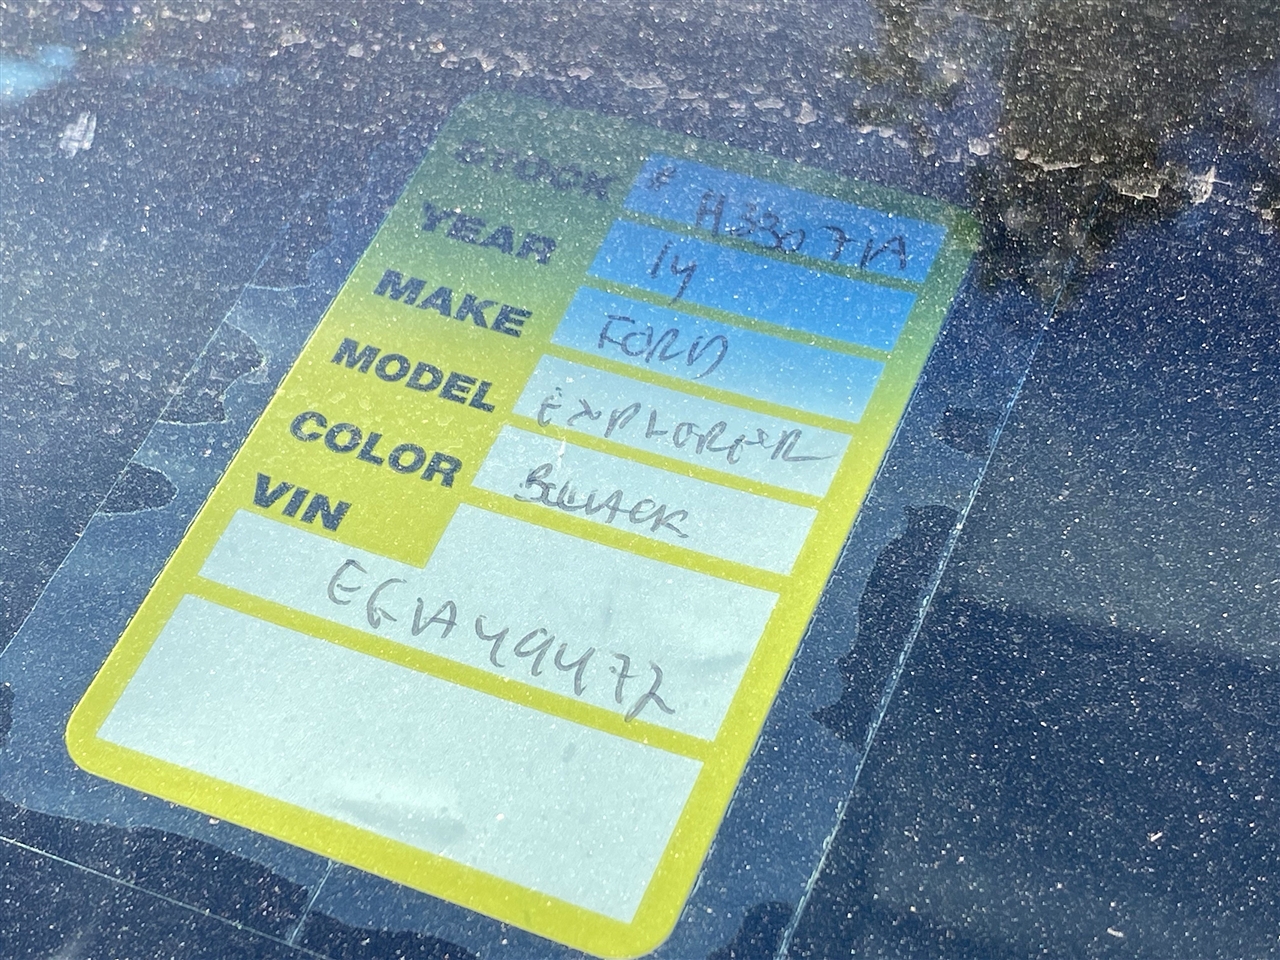 STOCK # H33071A
YEAR 14
MAKE FORD
MODEL EXPLORER
COLOR BLUACK
VIN
EGA49472